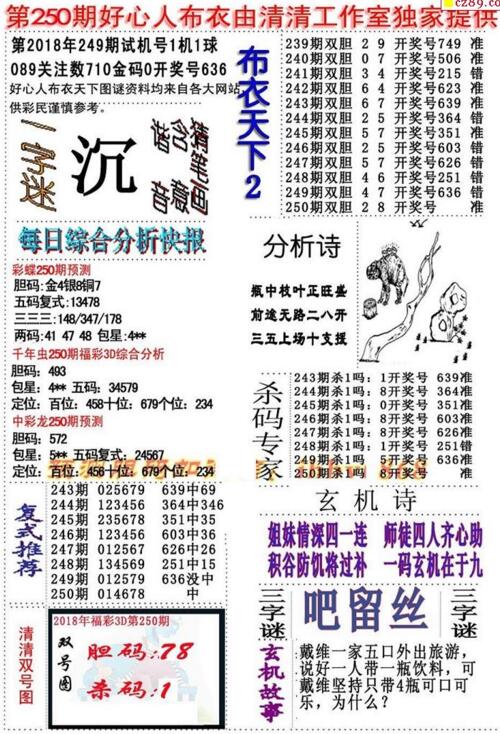 cz89.co
第250期好心人布衣由清清工作室独家提供
第2018年249期试机号1机1球
089关注数710金码0开奖号636
好心人布衣天下图谜资料均来自各大网站
供彩民谨慎参考。
一字迷
沉
谐含猪生画
音意
每日综合分析快报
彩蝶250期预测
胆码:金4银8铜7
五码复式:13478
三三三:148/347/178
两码: 41 47 48 包星:4**
千年虫250期福彩3D综合分析
胆码: 493
包星: 4** 五码: 34579
定位: 百位: 458十位: 679个位: 234
中彩龙250期预测
胆码: 572
包星: 5** 五码复式: 24567
定位: 百位: 456十位: 679个位: 234
布衣天下2
239期双胆 2 9 开奖号749 准
240期双胆 0 7 开奖号506 准
241期双胆 3 4 开奖号215 错
242期双胆 6 4 开奖号623 准
243期双胆 8 9 开奖号639 准
244期双胆 2 5 开奖号364 错
245期双胆 5 7 开奖号351 准
246期双胆 2 6 开奖号603 准
247期双胆 5 7 开奖号626 错
248期双胆 4 6 开奖号251 错
249期双胆 4 7 开奖号636 错
250期双胆 2 8 开奖号 准
分析诗
瓶中枝叶正旺盛
前途无路二八开
三五上场十支援
杀码专家
243期杀1吗: 1开奖号 639准
244期杀1吗: 8开奖号 364准
245期杀1吗: 0开奖号 351准
246期杀1吗: 8开奖号 603准
247期杀1吗: 4开奖号 626准
248期杀1吗: 2开奖号 251错
249期杀1吗: 5开奖号 636准
250期杀1吗: 8开奖号 准
复式推荐
243期 025679 639中69
244期 123456 364中346
245期 235678 351中35
246期 123456 603中36
247期 012567 626中26
248期 013567 251中15
249期 012579 636没中
250期 014678 中
玄机诗
姐妹情深四一连 师徒四人齐心助
积谷防饥将过补 一码玄机在于九
清清双号图
2018年福彩3D第250期
双号图
胆码:78
杀码:1
三字谜
吧留丝
三字谜
玄机故事
戴维一家五口外出旅游，
说好一人带一瓶饮料，可
戴维坚持只带4瓶可口可
乐，为什么？